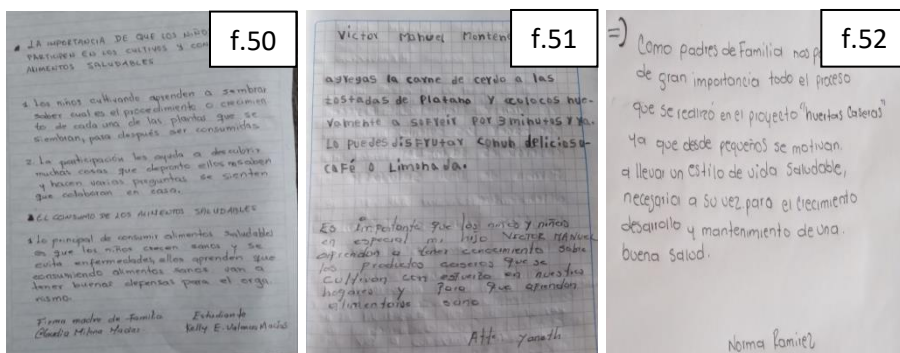 f.50
LA IMPORTANCIA DE QUE LOS NIÑO
PARTICIPEN EN LOS CULTIVOS Y CON
ALIMENTOS SALUDABLES
1. Los niños cultivando aprenden a sembrar
saber cual es el procedimiento o crecimien
to de cada una de las plantas que se
siembran, para después ser consumidas
2. La participación les ayuda a descubrir
muchas cosas que depronto ellos no saben
y hacen varias preguntas se sienten
que colaboran en casa.
EL CONSUMO DE LOS ALIMENTOS SALUDABLES
Lo principal de consumir alimentos saludables
es que los niños crecen sanos y se
evita enfermedades, ellos aprenden que
consumiendo alimentos sanos van a
tener buenas depensas para el orga
nismo.
Firma madre de familia Estudiante
Claudia Milena Macias Kelly E. Valencia Macias
f.51
Victor Manuel Monten
agregas la carne de cerdo a las
tostadas de Platano y colocas nue-
vamente a sofreir por 3 minutos y ya.
Lo puedes disfrutar con un delicioso
café o Limonada.
Es importante que los niños y niñas
en especial mi hijo VICTOR MANUEL
aprendan a tener conocimiento sobre
los productos caseros que se
cultivan con esfuerzo en nuestros
hogares y para que aprendan
alimentarse sano
Atte Yaneth
f.52
=)
Como padres de Familia nos p
de gran importancia todo el proceso
que se realizó en el proyecto "huertas Caseras"
ya que desde pequeños se motivan
a llevar un estilo de vida Saludable,
necesaria a su vez para el crecimiento
desarrollo y mantenimiento de una
buena salud.
Norma Ramirez